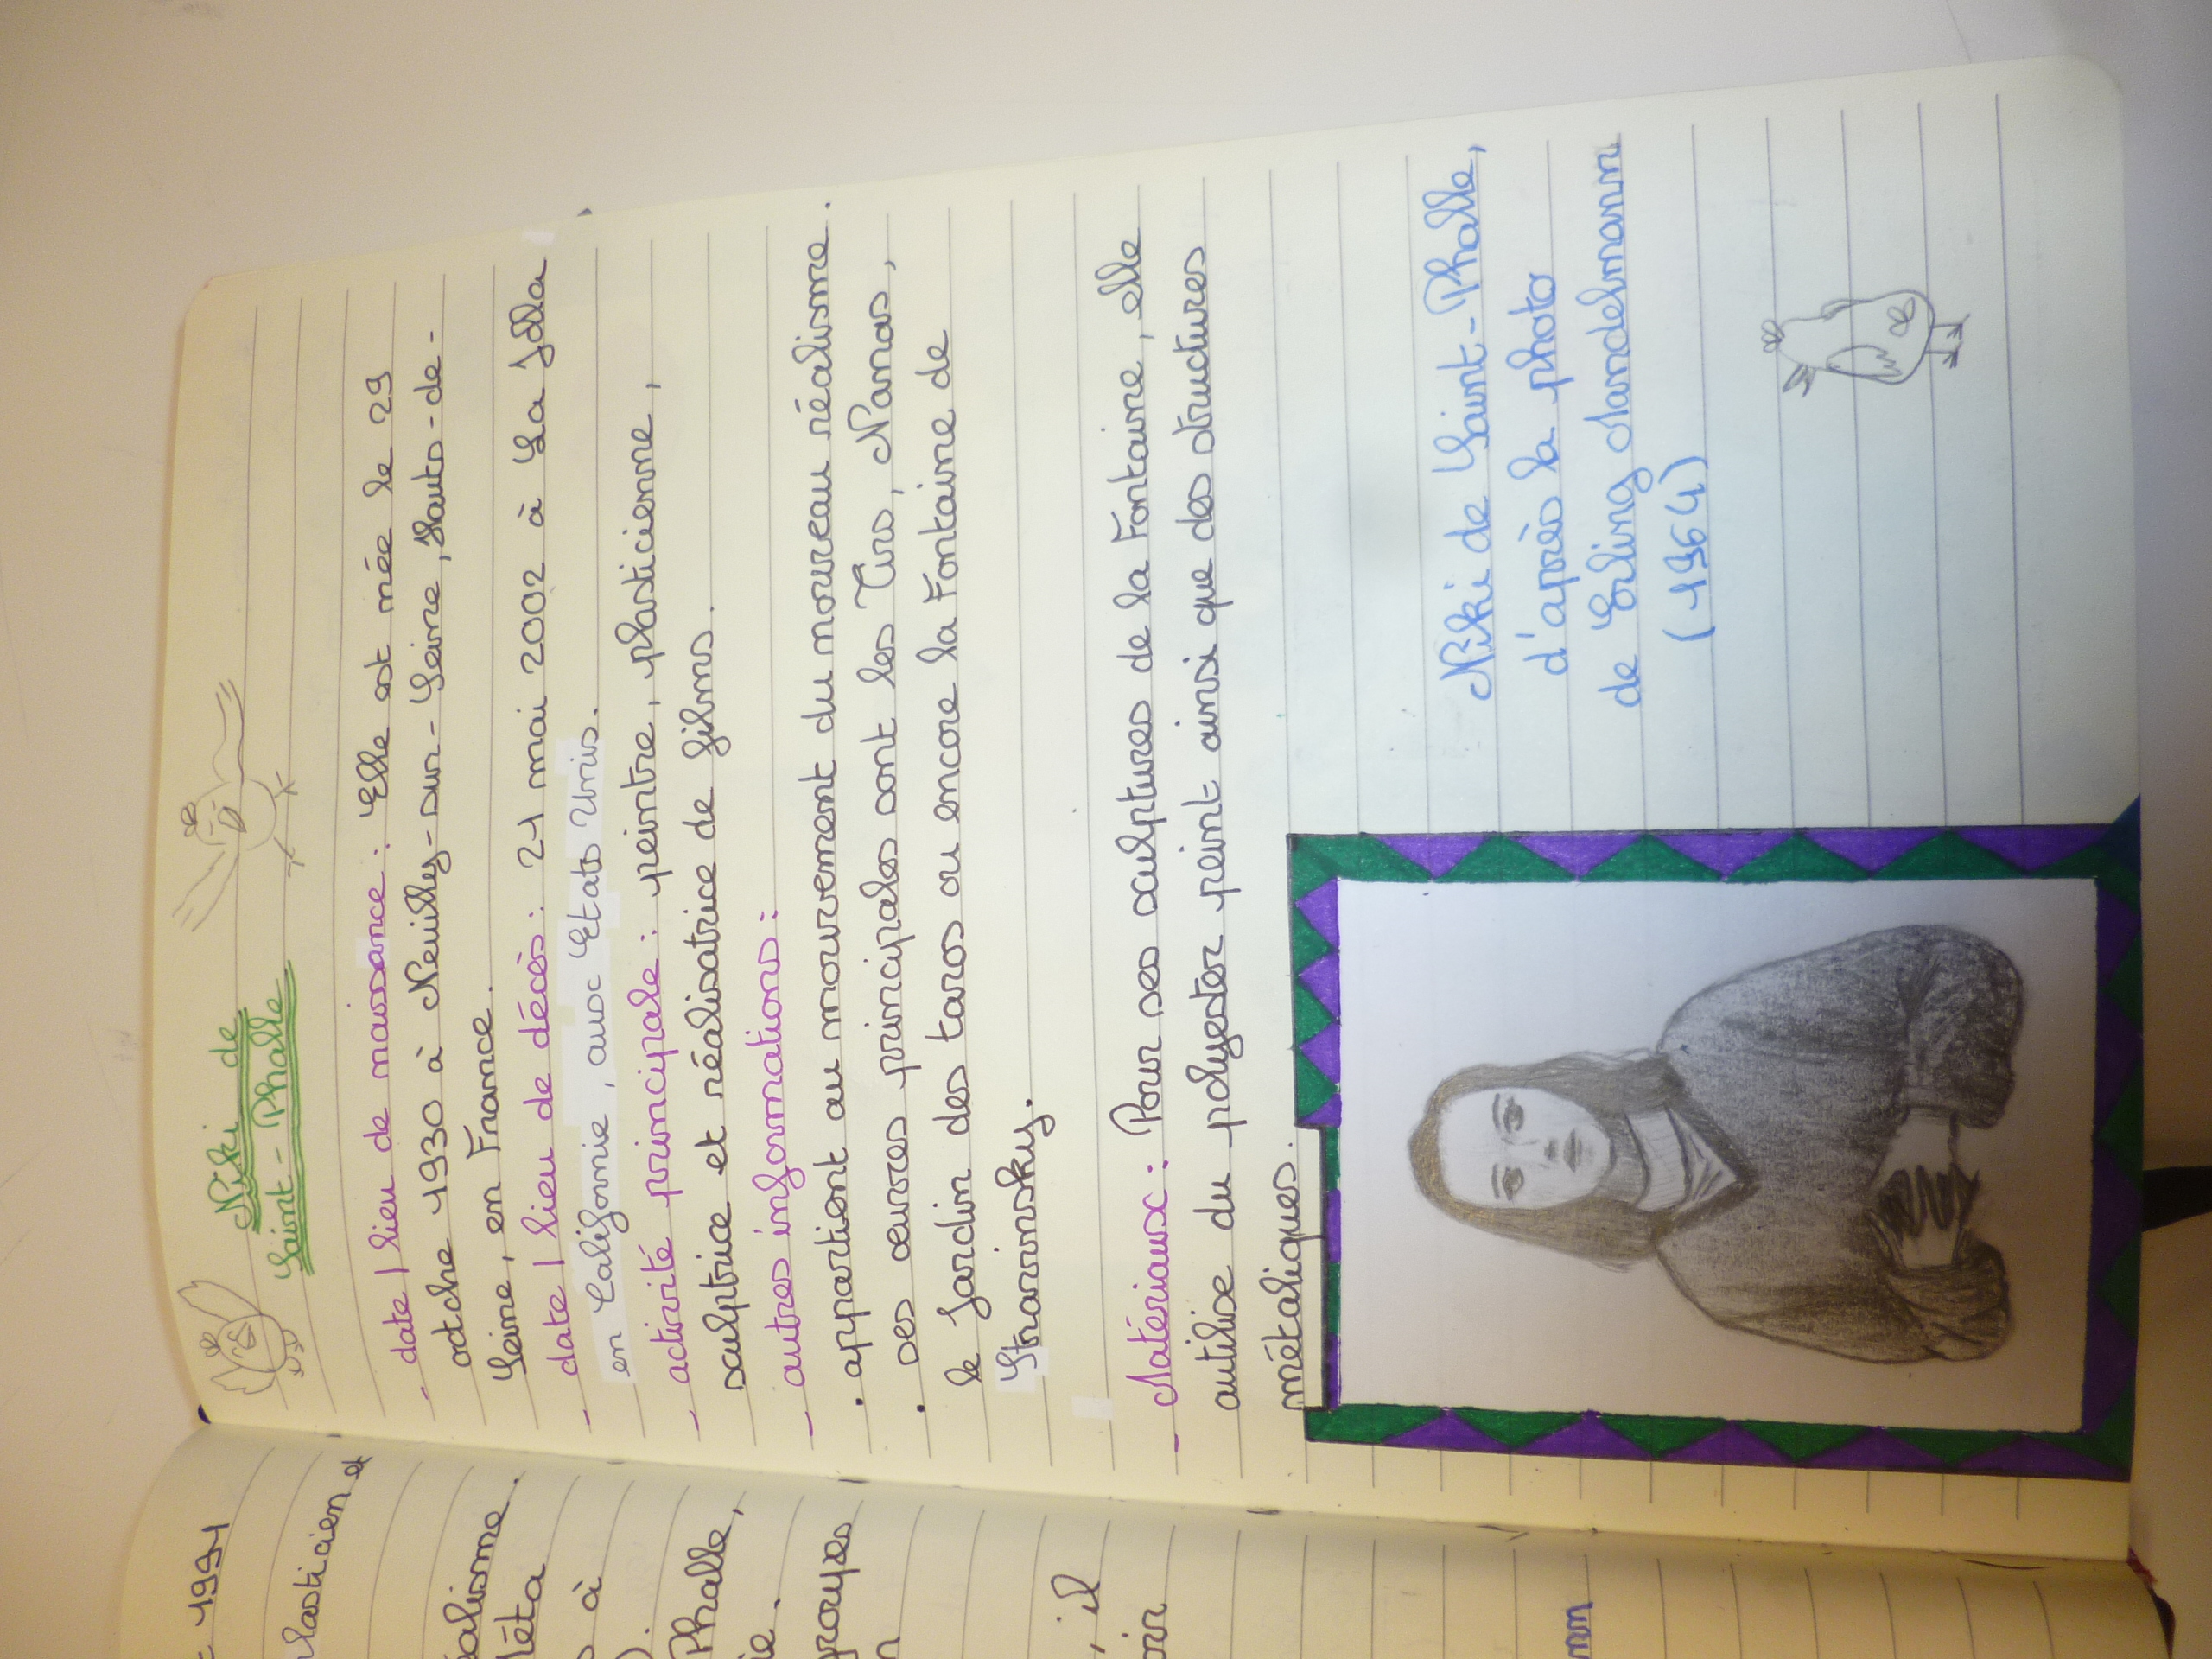 = 1991
lasticien et
éalisme.
léta
à
).
Phalle,
ie.
groupes
n
, il
oir
nn
Niki de
Saint-Phalle
- date / lieu de naissance : Elle est née le 29
octobre 1930 à Neuilly-sur-Seine, Hauts-de-
Seine, en France.
- date / lieu de décès : 21 mai 2002 à La Jolla
en Californie, aux Etats Unis.
- activité principale : peintre, plasticienne,
sculptrice et réalisatrice de films.
- autres informations :
• appartient au mouvement du nouveau réalisme.
• ses œuvres principales sont les Tirs, Nanas,
le Jardin des taros ou encore la Fontaine de
Stravinsky.
- Matériaux : Pour ses sculptures de la Fontaine, elle
utilise du polyester peint ainsi que des structures
métaliques.
Niki de Saint-Phalle,
d'après la photo
de Erling Mandelmann
(1964)